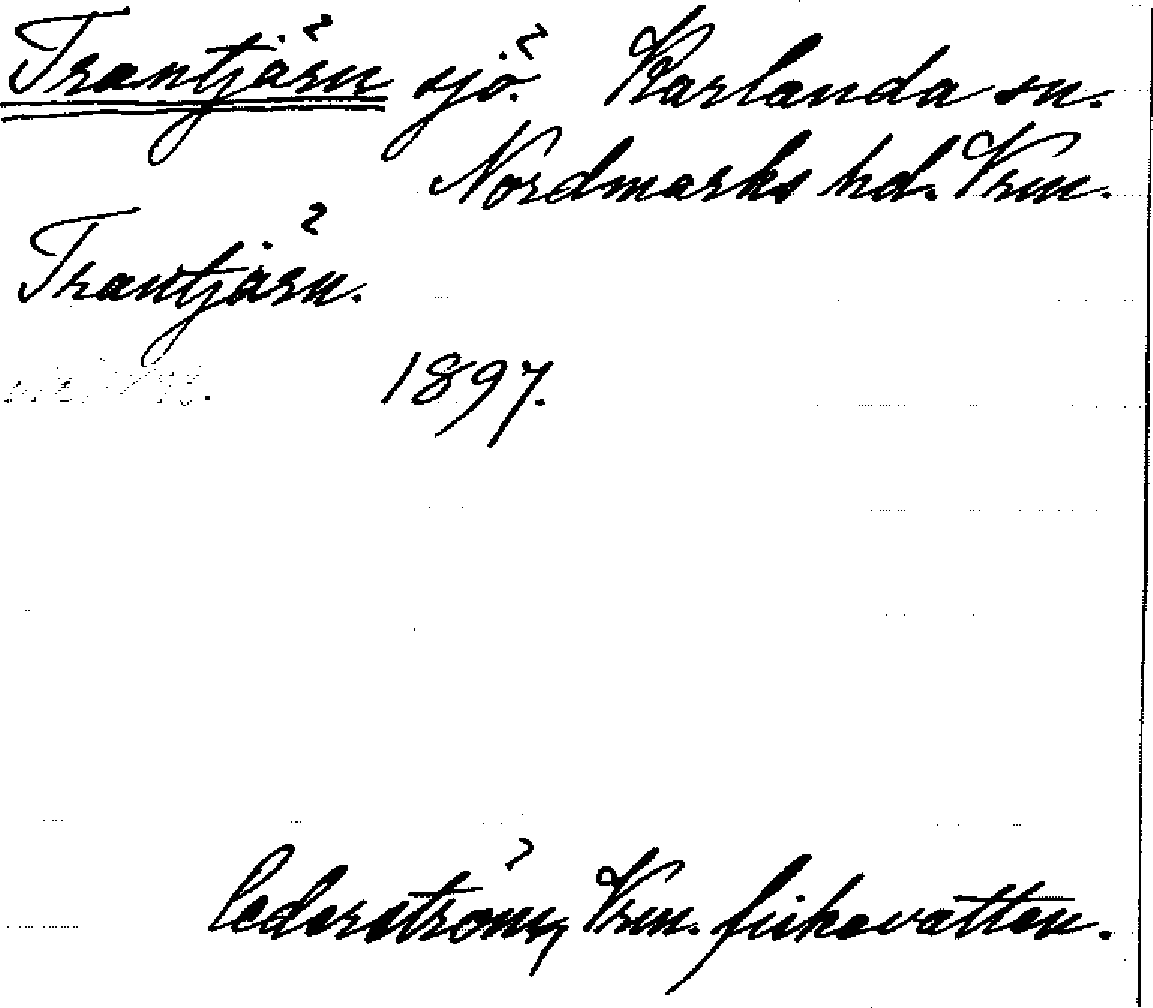 Trantjärn sjö. Karlanda sn.
Nordmarks hd. Vrm.
Trantjärn.
1897.
Cederström, Vrm. fiskevatten.